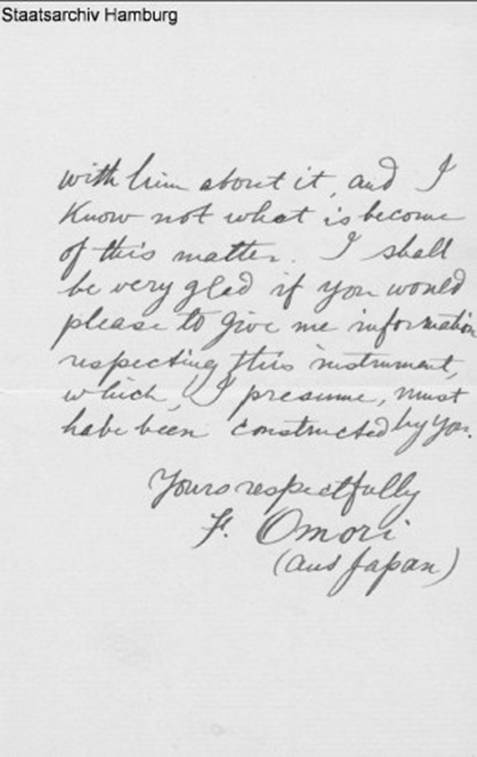 Staatsarchiv Hamburg
with him about it, and I
know not what is become
of this matter. I shall
be very glad if you would
please to give me information
respecting this instrument,
which, I presume, must
habe been constructed by you.
Yours respectfully
F. Omori
(aus Japan)